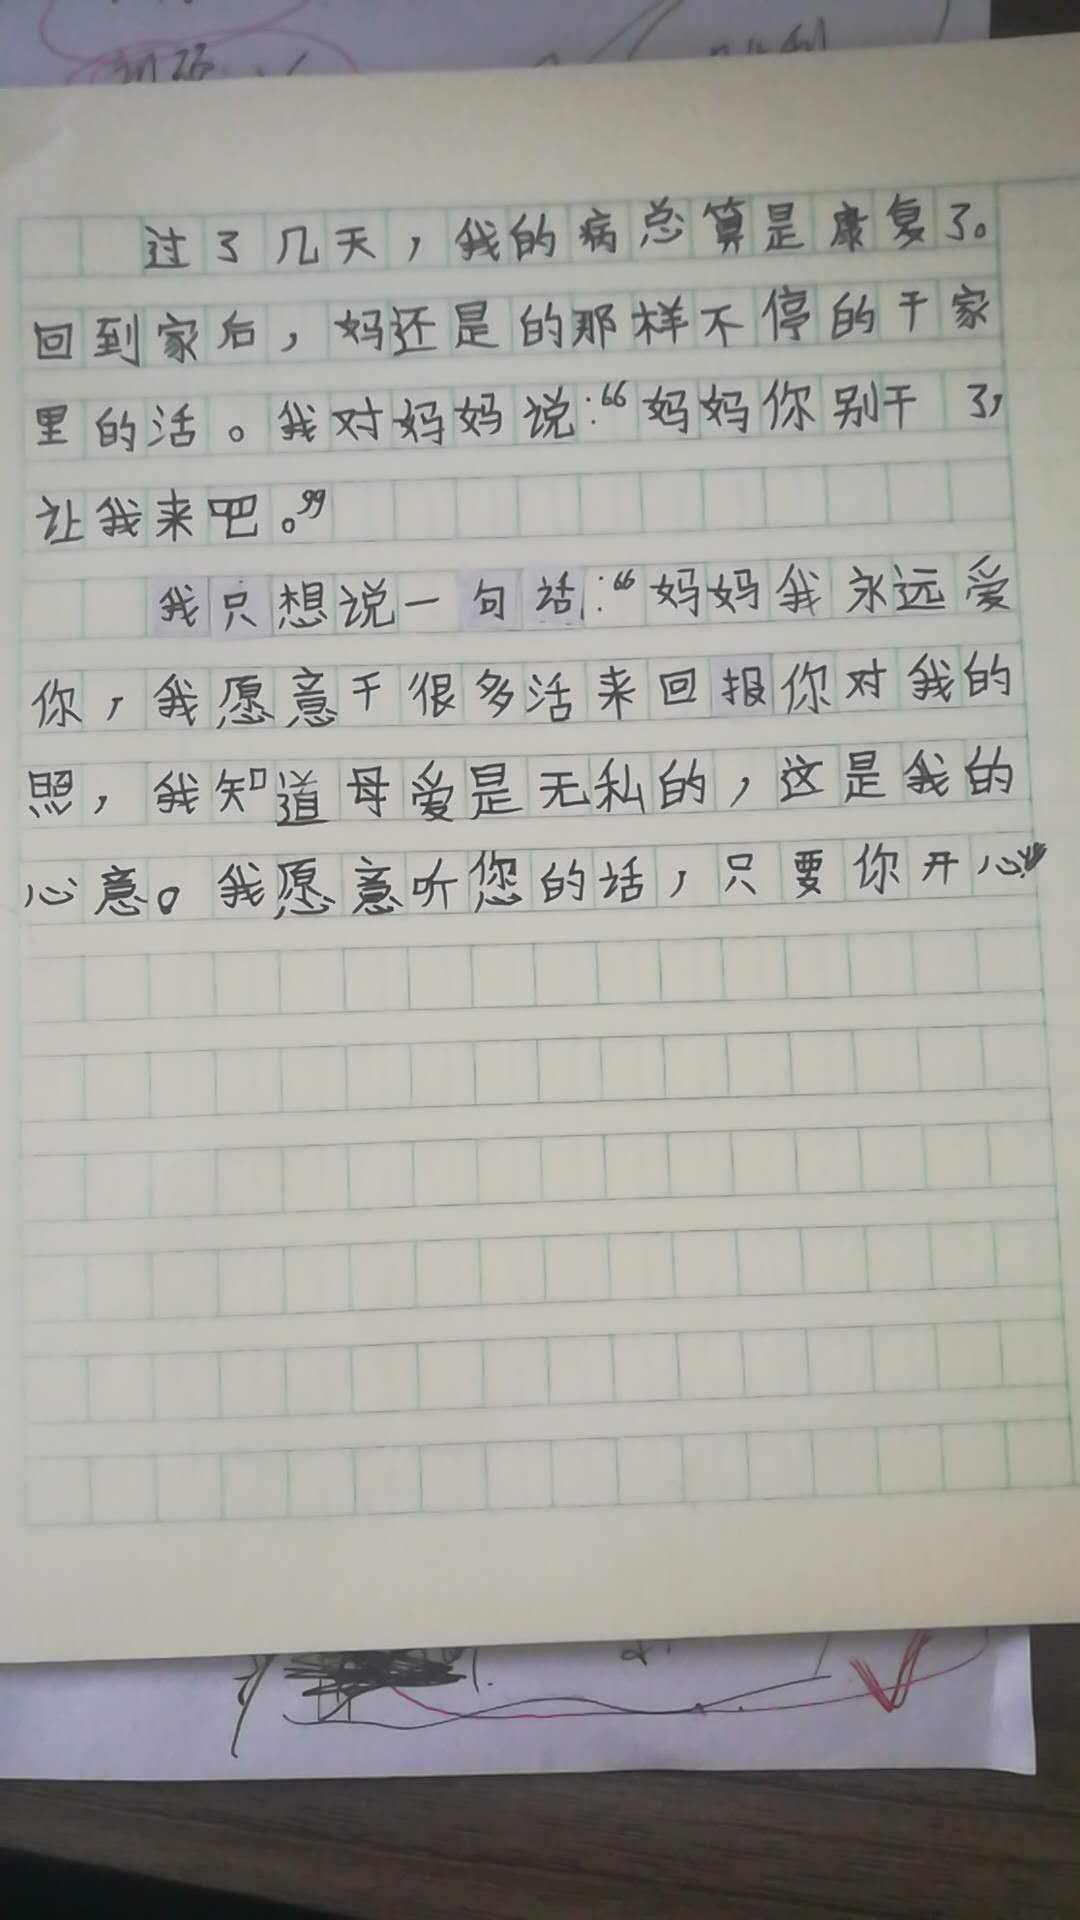 过了几天，我的病总算是康复了。
回到家后，妈还是的那样不停的干家
里的活。我对妈妈说：“妈妈你别干了，
让我来吧。”
我只想说一句话：“妈妈我永远爱
你，我愿意干很多活来回报你对我的
照，我知道母爱是无私的，这是我的
心意。我愿意听您的话，只要你开心”